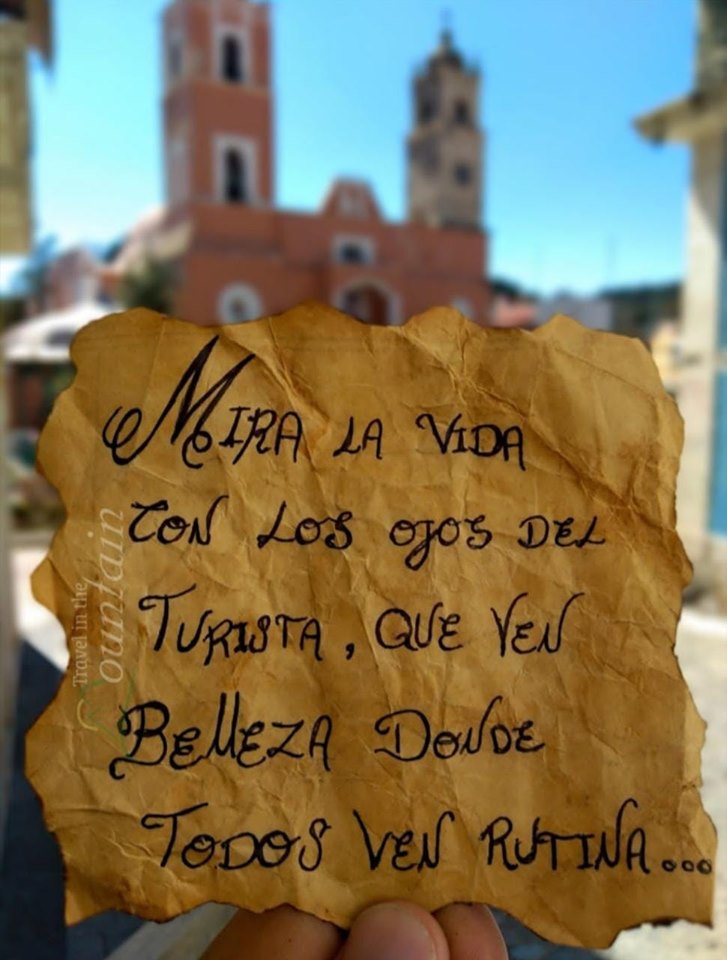 Mira la vida
con los ojos del
Turista, que ven
Belleza donde
todos ven rutina...
Travel in the
Mountain